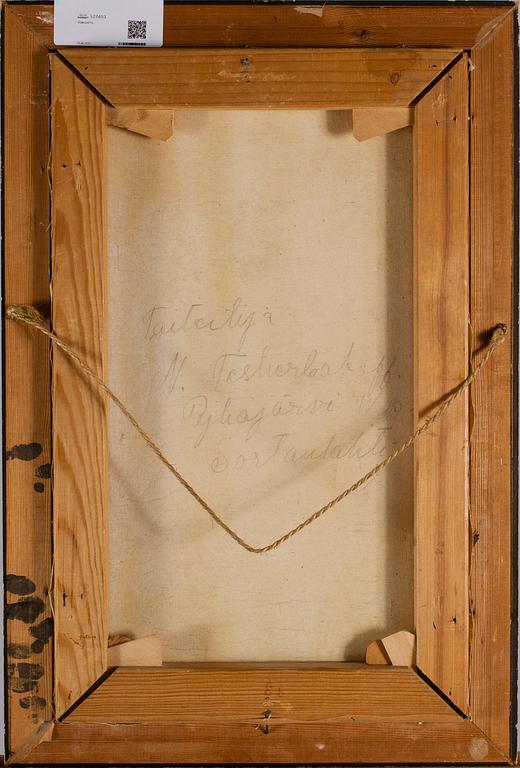 127453
Taiteilija
N. Tscherbakoff.
Pyhäjärvi
Sortanlahti